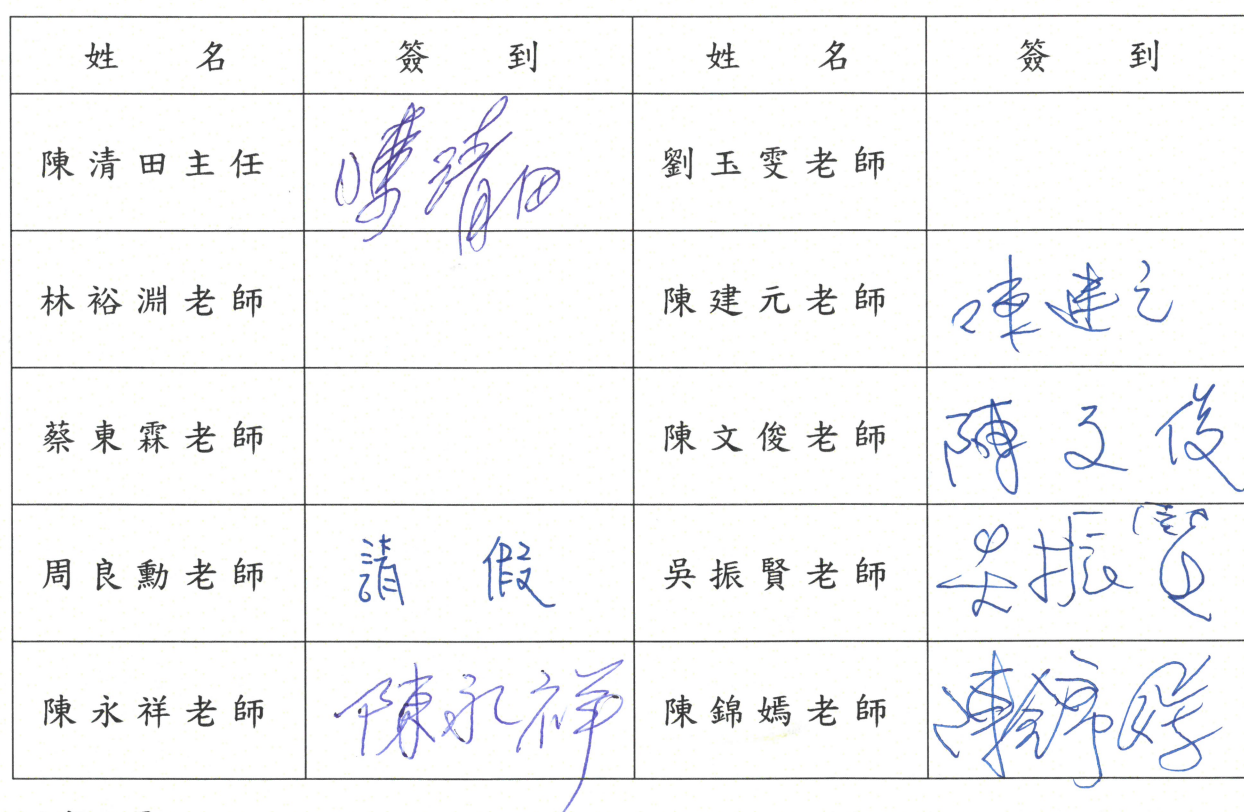 姓名 簽到 姓名 簽到
陳清田主任 陳清田 劉玉雯老師
林裕淵老師 陳建元老師 陳建元
蔡東霖老師 陳文俊老師 陳文俊
周良勳老師 請假 吳振賢老師 吳振賢
陳永祥老師 陳永祥 陳錦嫣老師 陳錦嫣